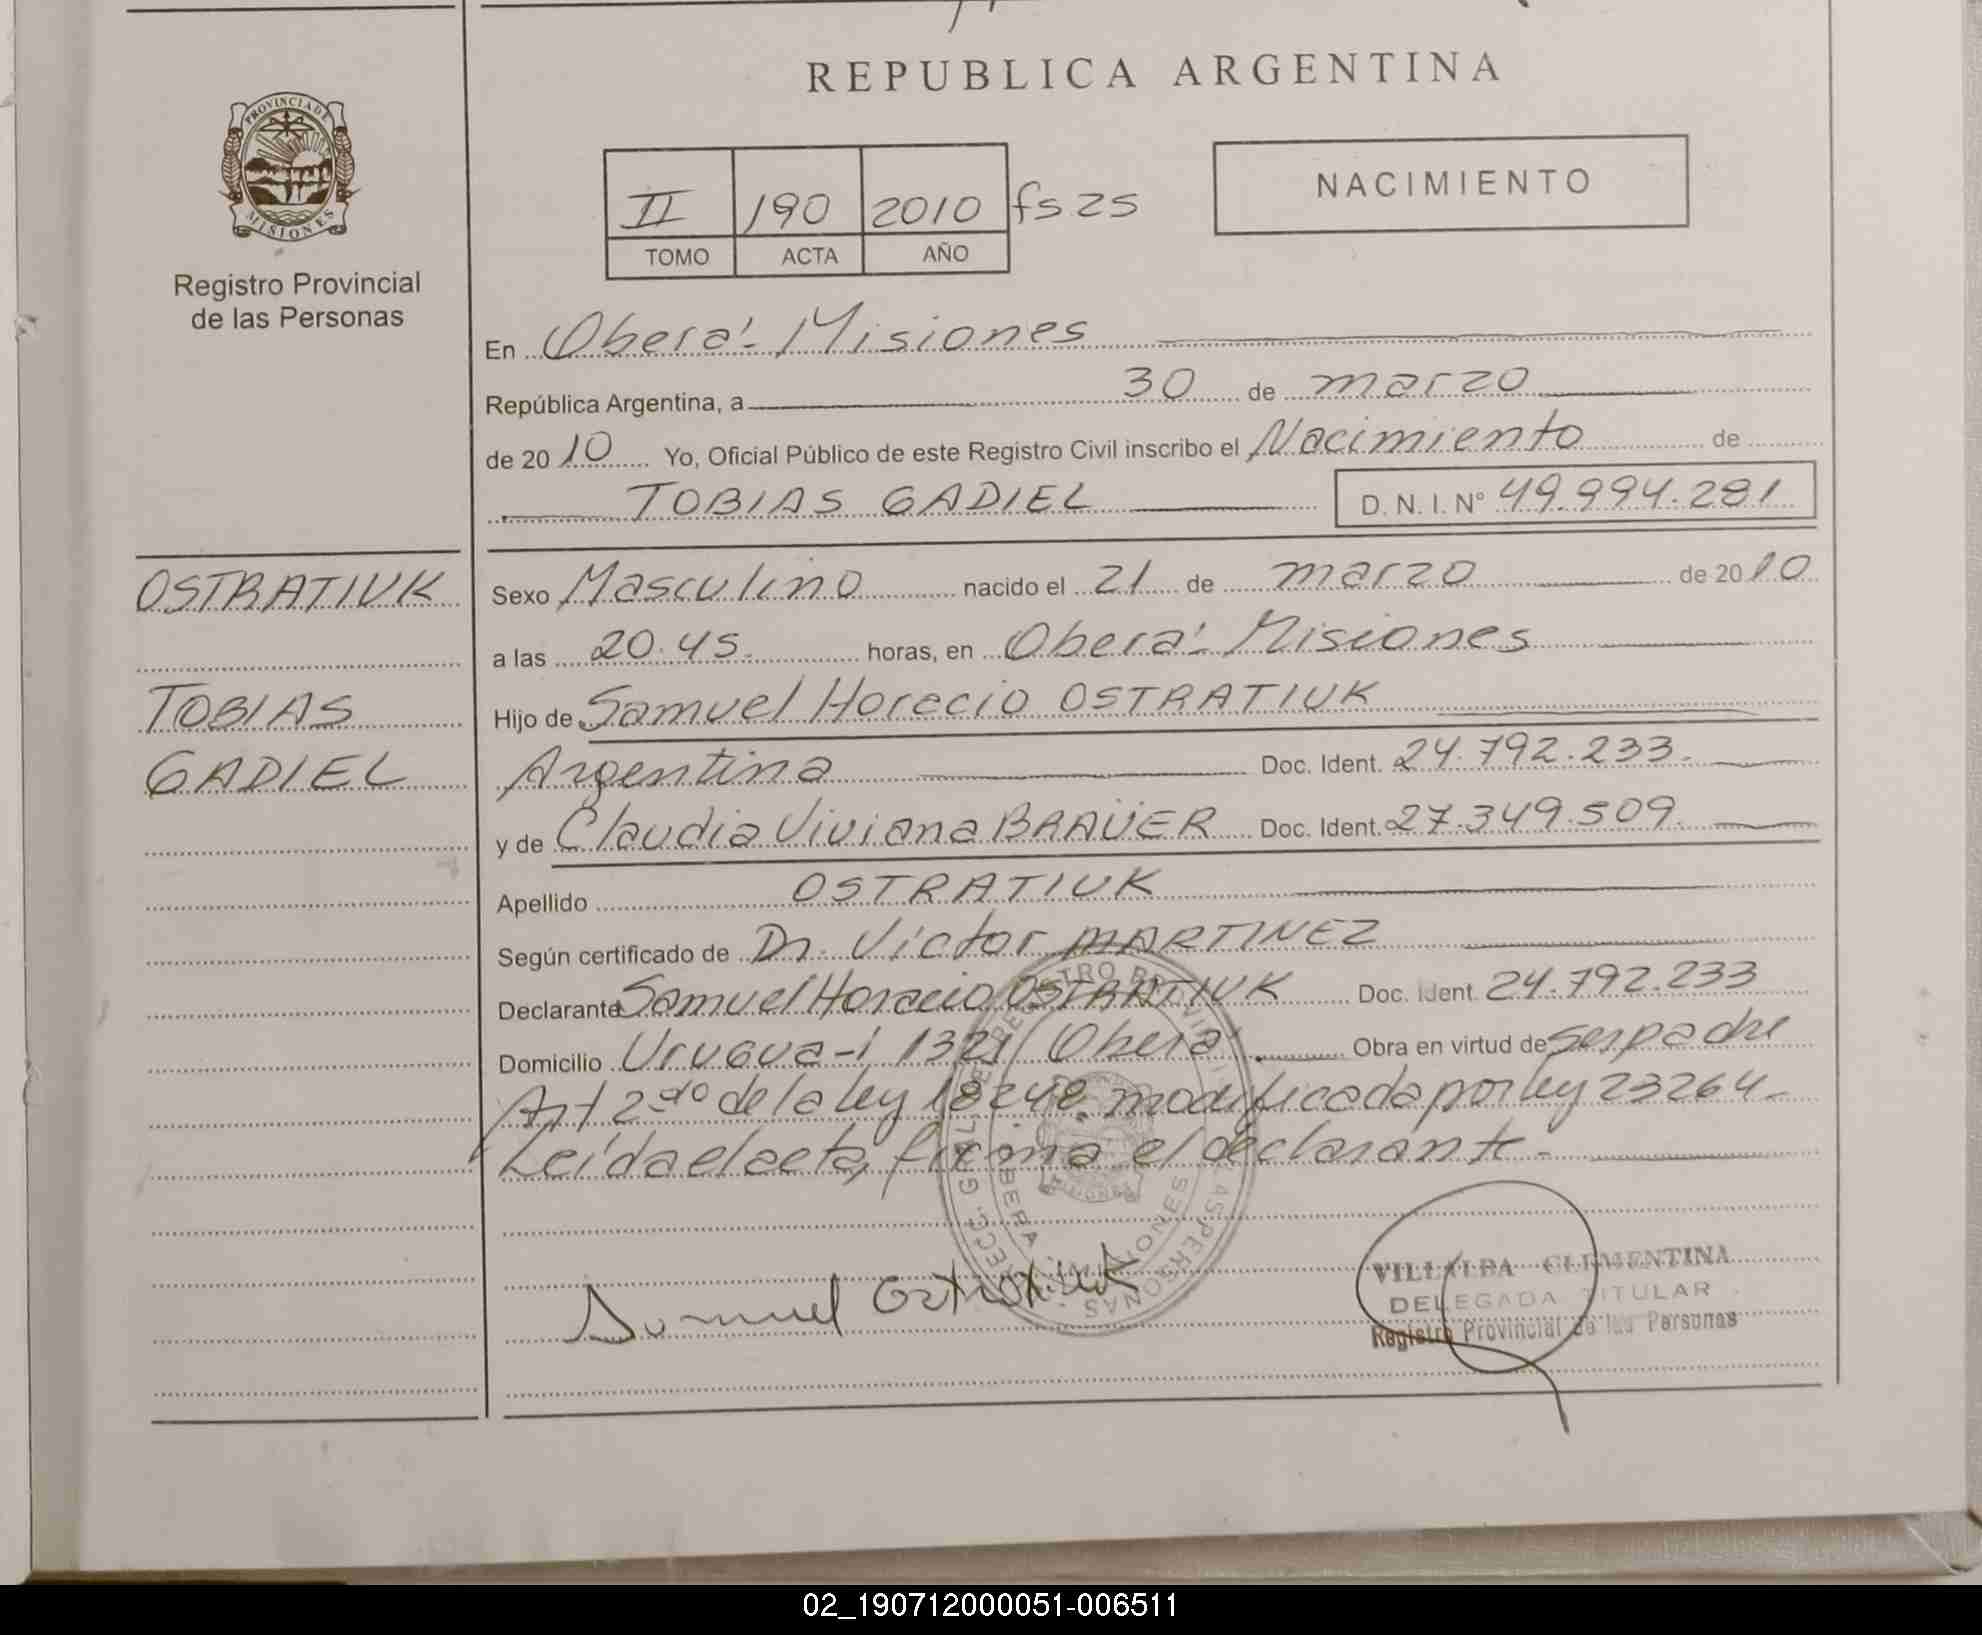 REPUBLICA ARGENTINA
PROVINCIA DE
MISIONES
Registro Provincial
de las Personas
II 190 2010 fs 25
TOMO ACTA AÑO
NACIMIENTO
En Oberá - Misiones
República Argentina, a 30 de marzo
de 2010 Yo, Oficial Público de este Registro Civil inscribo el Nacimiento de
TOBIAS GADIEL D. N. I. Nº 49.994.281
OSTRATIUK
TOBIAS
GADIEL
Sexo Masculino nacido el 21 de marzo de 2010
a las 20.45. horas, en Oberá - Misiones
Hijo de Samuel Horacio OSTRATIUK
Argentina Doc. Ident. 24.792.233.
y de Claudia Viviana BRAÜER Doc. Ident. 27.349.509.
Apellido OSTRATIUK
Según certificado de Dr. Victor MARTINEZ
Declarante Samuel Horacio OSTRATIUK Doc. Ident. 24.792.233
Domicilio Urugua-í 1321 Oberá Obra en virtud de ser padre
Art 2do de la ley 18248 modificada por ley 23264.
Leída el acta, firma el declarante.
Samuel Ostratiuk
VILLALBA CLEMENTINA
DELEGADA TITULAR
Registro Provincial de las Personas
02_190712000051-006511